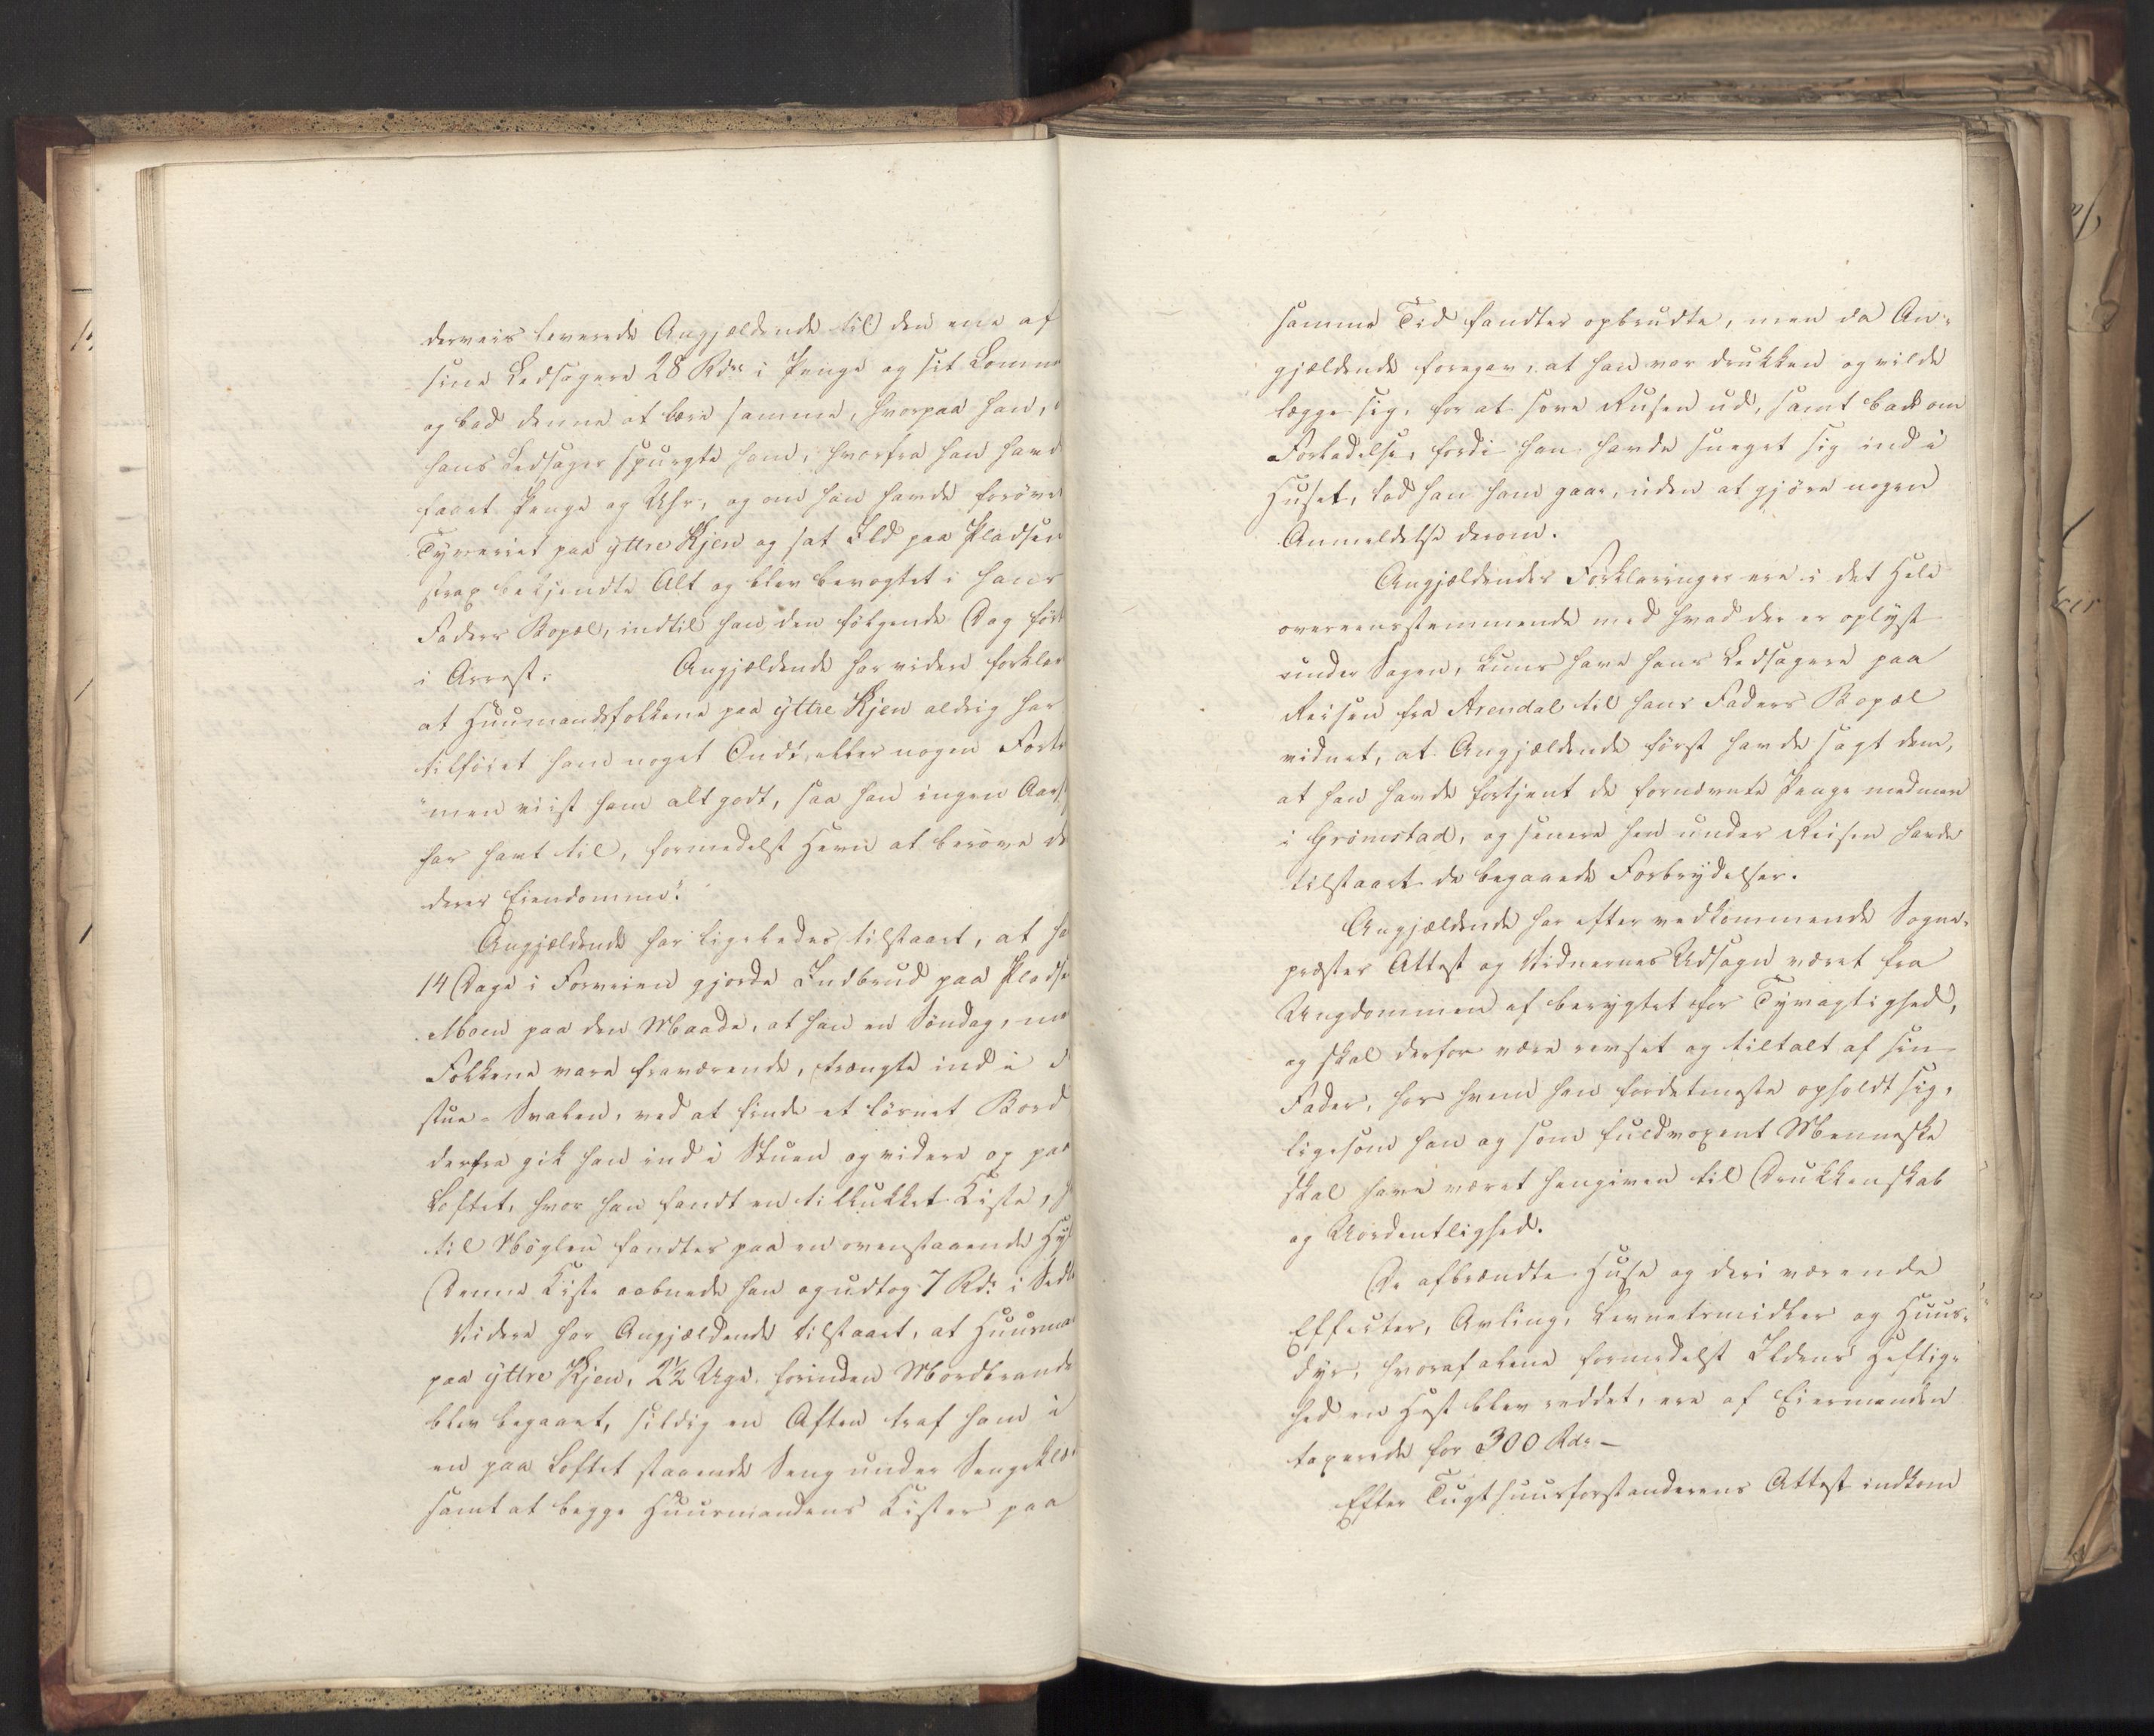 derveis leverede Angjældende til den ene af
sine Ledsagere 28 Rdr i Penge og sit Lomme
og bad denne at bære samme, hvorpaa han,
hans Ledsager spurgte ham, hvorfra han havd
faaet Penge og Uhr, og om han havde forøve
Tyveriet paa yttre Kjen og sat Ild paa Pladsen
strax bekjendte Alt og blev bevogtet i hans
Faders Bopæl, indtil han den følgende Dag før
i Arrest. Angjældende har videre forklar
at Huusmandsfolkene paa yttre Kjen aldrig har
tilføiet ham noget Ondt eller nogen Fortr
"men viist ham alt godt, saa han ingen Aars
har havt til, formedelst Hevn at berøve d
deres Eiendomme".
Angjældende har ligeledes tilstaaet, at ha
14 Dage i Forveien gjorde Indbrud paa Pladse
Moen paa den Maade, at han en Søndag, me
Folkene vare fraværende, trængte ind i
stue-Svalen, ved at finde et løsnet Bord
derfra gik han ind i Stuen og videre op paa
Loftet, hvor han fandt en tillukket Kiste, h
til Nøglen fandtes paa en ovenstaaende Hyl
Denne Kiste aabnede han og udtog 7 Rdr i Sedl
Videre har Angjældende tilstaaet, at Huusma
paa yttre Kjen, 2½ Uge forinden Mordbrande
blev begaaet, sildig en Aften traf ham i
en paa Loftet staaende Seng under Sengeklæ
samt at begge Huusmandens Kister paa
samme Tid fandtes opbrudte, men da An-
gjældende foregav, at han var drukken og vilde
lægge sig, for at sove Rusen ud, samt bad om
Forladelse, fordi han havde sneget sig ind i
Huset, lod han ham gaae, uden at gjøre nogen
Anmeldelse derom.
Angjældendes Forklaringer ere i det Hele
overeensstemmende med hvad der er oplyst
under Sagen, kuns have hans Ledsagere paa
Reisen fra Arendal til hans Faders Bopæl
vidnet, at Angjældende først havde sagt dem,
at han havde fortjent de fornævnte Penge med mere
i Grimstad, og senere hen under Reisen havde
tilstaaet de begaaede Forbrydelser.
Angjældende har efter vedkommende Sogne-
præstes Attest og Vidnernes Udsagn været fra
Ungdommen af berygtet for Tyvagtighed,
og skal derfor være revset og tiltalt af sin
Fader, hos hvem han fordetmeste opholdt sig,
ligesom han og som fuldvoxent Menneske
skal have været hengiven til Drukkenskab
og Uordentlighed.
De afbrændte Huse og deri værende
Effecter, Avling, Levnetsmidler og Huus-
dyr, hvoraf alene formedelst Ildens Heftig-
hed en Hest blev reddet, ere af Eiermanden
taxerede for 300 Rdr –
Efter Tugthuusforstanderens Attest indkom